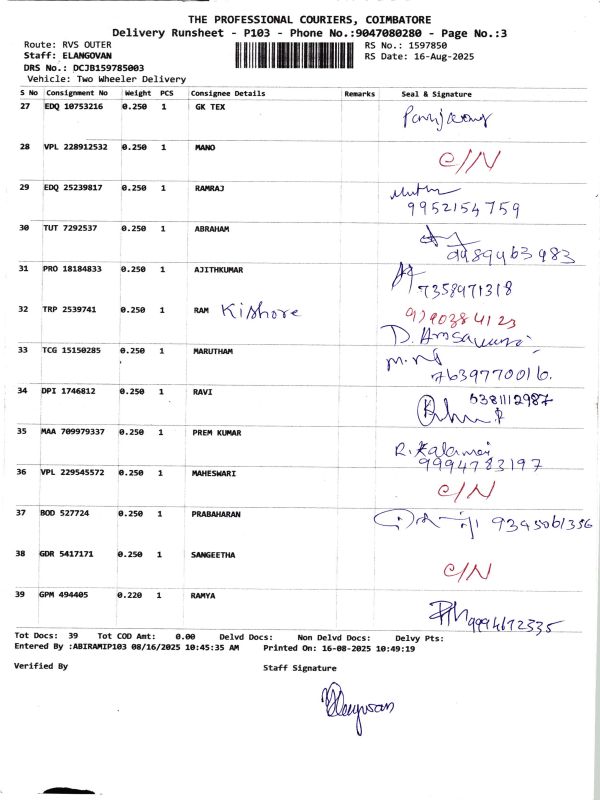 THE PROFESSIONAL COURIERS, COIMBATORE
Delivery Runsheet - P103 - Phone No.:9047080280 - Page No.:3
Route: RVS OUTER
RS No.: 1597850
Staff: ELANGOVAN
RS Date: 16-Aug-2025
DRS No.: DCJB159785003
Vehicle: Two Wheeler Delivery
S No Consignment No Weight PCS Consignee Details Remarks Seal & Signature
27 EDQ 10753216 0.250 1 GK TEX
28 VPL 228912532 0.250 1 MANO C/N
29 EDQ 25239817 0.250 1 RAMRAJ
9952154759
30 TUT 7292537 0.250 1 ABRAHAM
9489463983
31 PRO 18184833 0.250 1 AJITHKUMAR
7358971318
32 TRP 2539741 0.250 1 RAM Kishore
33 TCG 15150285 0.250 1 MARUTHAM
7639770016.
34 DPI 1746812 0.250 1 RAVI
6381112987
35 MAA 709979337 0.250 1 PREM KUMAR
R. Kalamei
9994783197
36 VPL 229545572 0.250 1 MAHESWARI C/N
37 BOD 527724 0.250 1 PRABAHARAN 9345061356
38 GDR 5417171 0.250 1 SANGEETHA C/N
39 GPM 494405 0.220 1 RAMYA
9994672335
Tot Docs: 39 Tot COD Amt: 0.00 Delvd Docs: Non Delvd Docs: Delvy Pts:
Entered By :ABIRAMIP103 08/16/2025 10:45:35 AM Printed On: 16-08-2025 10:49:19
Verified By Staff Signature
Elangovan